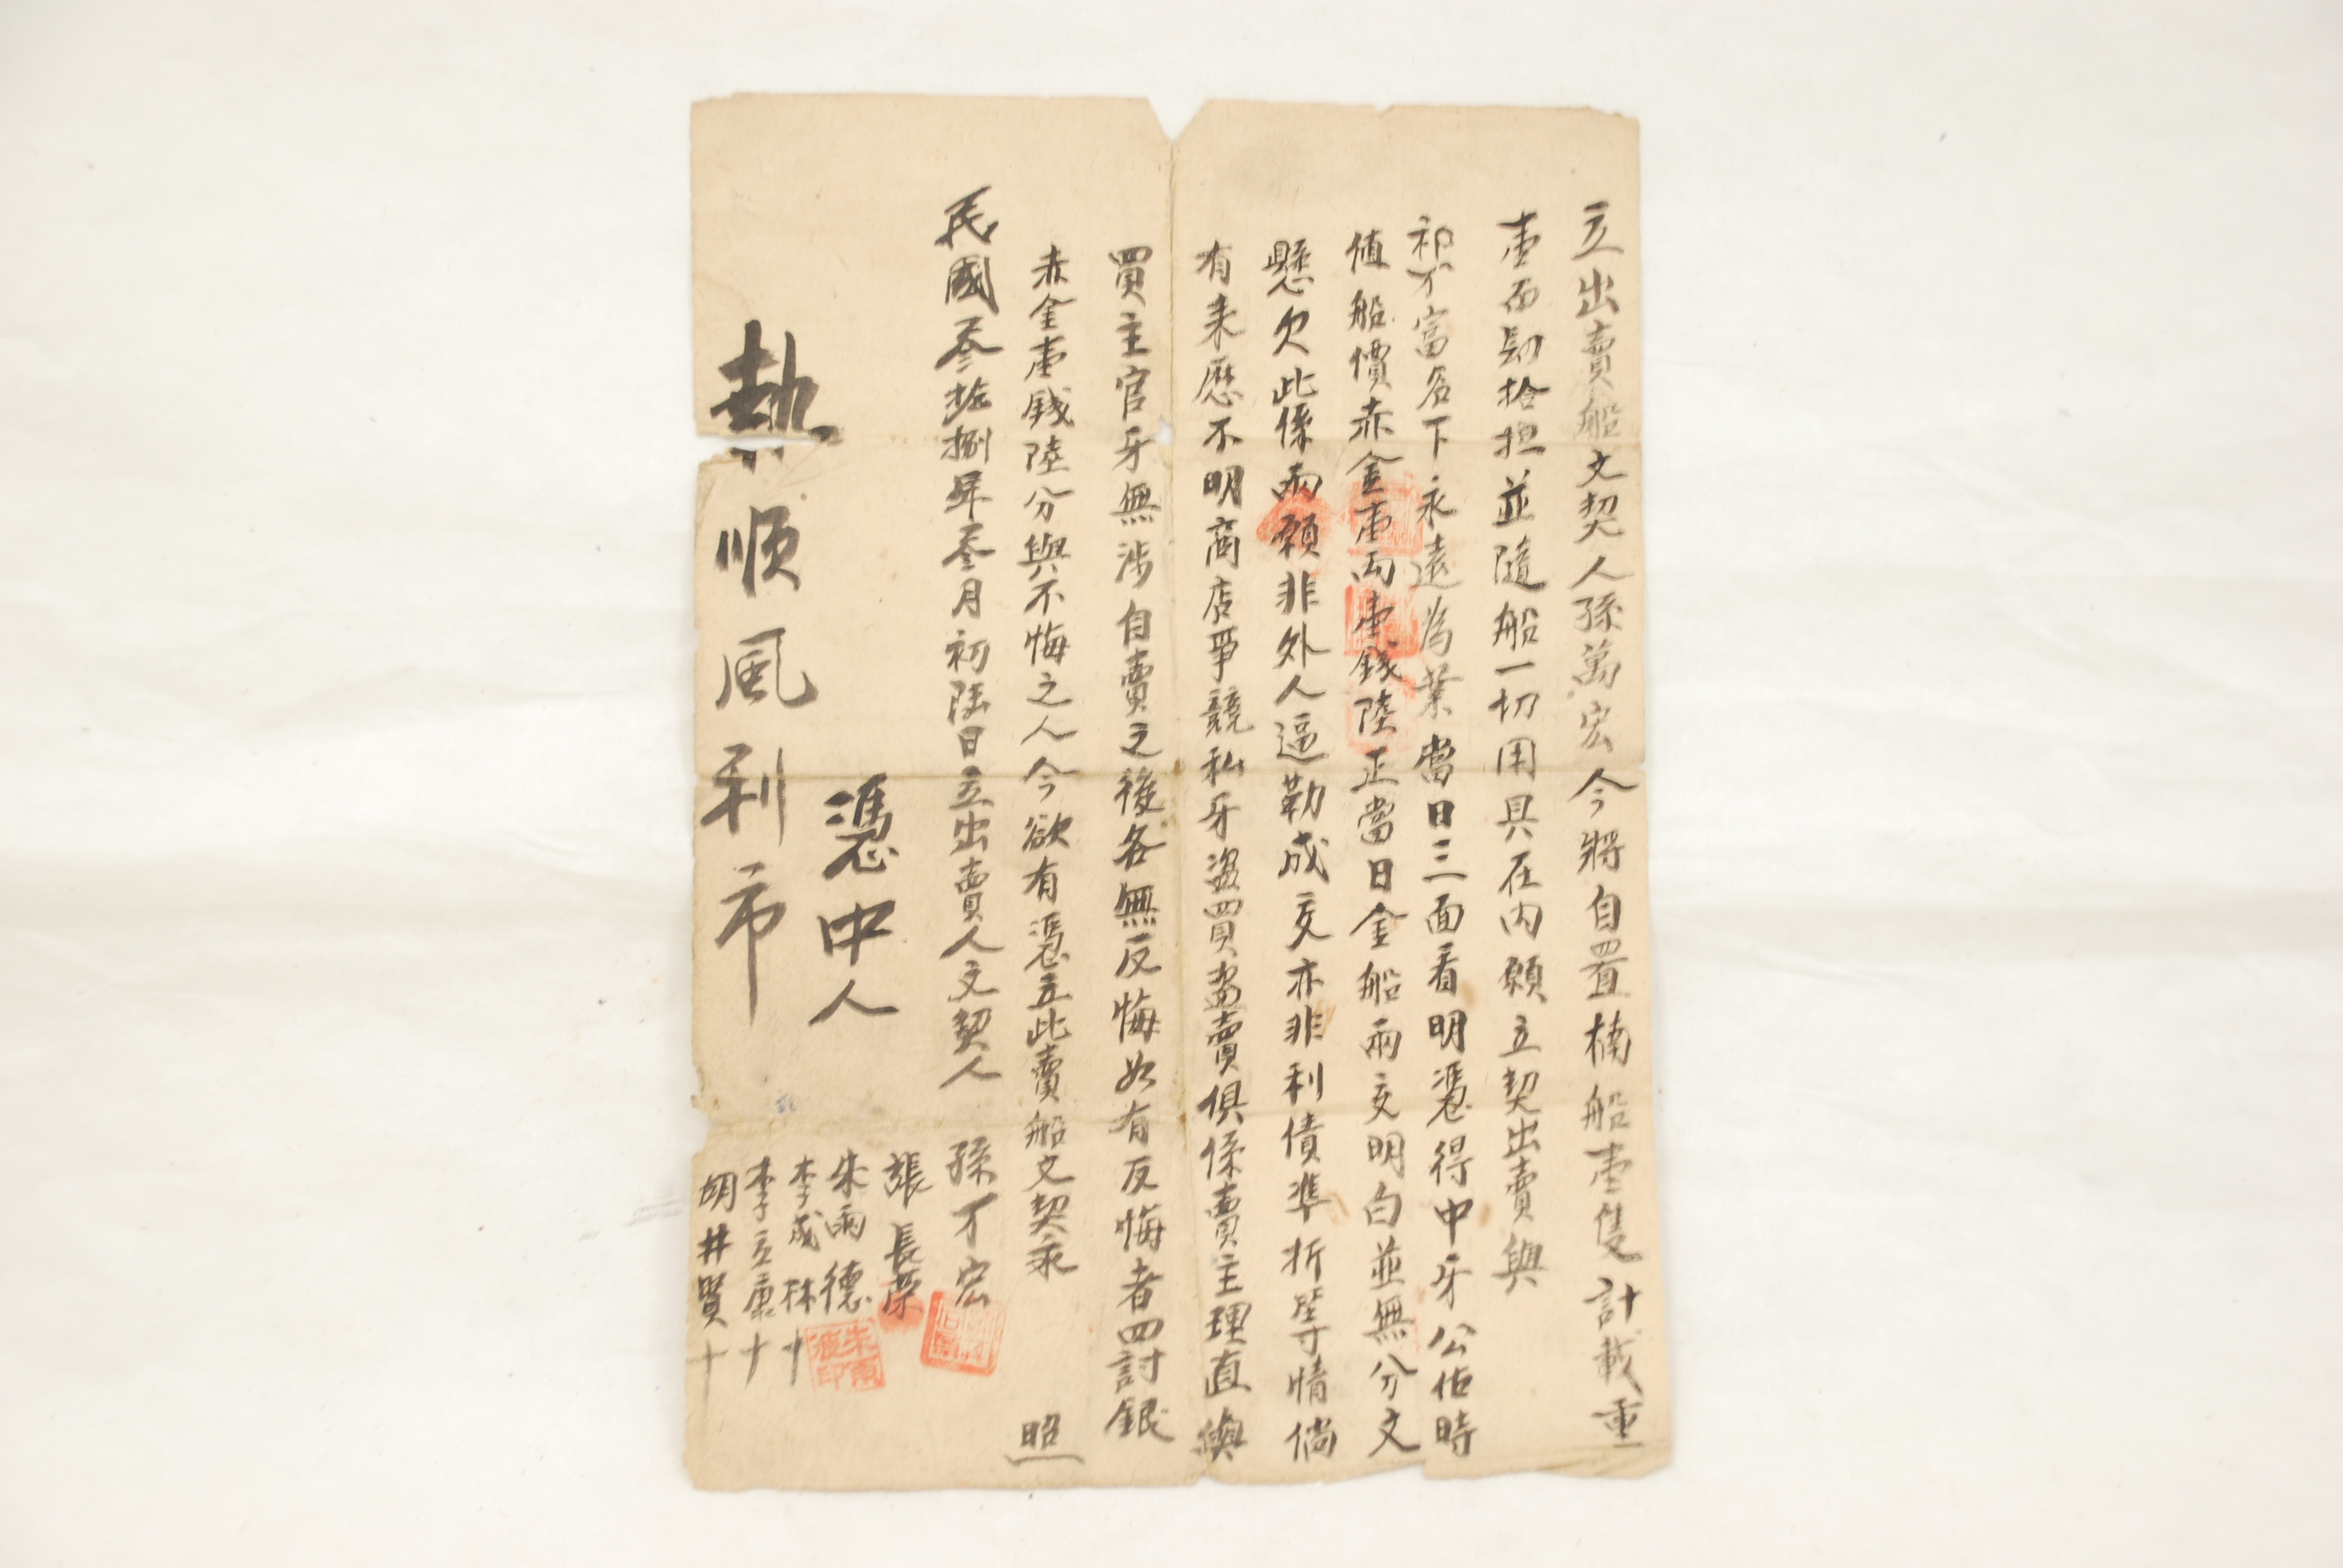 立出賣船文契人孫萬宏今將自置楠船壹隻計載重
壹百捌拾担並隨船一切用具在內願立契出賣與
祁才富名下永遠為業當日三面看明憑得中牙公估時
值船價赤金壹両壹錢陸正當日金船兩交明白並無分文
懸欠此係兩願非外人逼勒成交亦非利債準折等情倘
有來歷不明商店爭競私牙盜買盜賣俱係賣主理直與
買主官牙無涉自賣之後各無反悔如有反悔者四討銀
赤金壹錢陸分與不悔之人今欲有憑立此賣船文契永
照
民國叁拾捌年叁月初陸日立出賣人文契人 孫才宏
憑中人
張長荣
朱雨德
李成林十
李立康十
胡井賢十
執順風利市